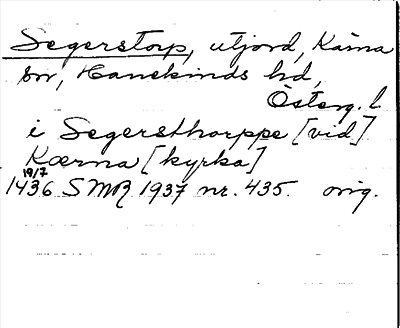 Segerstorp, utjord, Kärna
sn, Hanekinds hd,
Österg. l
i Segersthorppe [vid]
Kærna [kyrka]
19/7
1436 SMR 1937 nr. 435. orig.